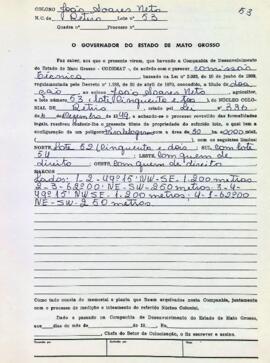 COLONO João Soares Neto
N.C. de Retiro Lote nº 53
Quadra nº Processo nº
O GOVERNADOR DO ESTADO DE MATO GROSSO
Faz saber, aos que a presente virem, que havendo a Companhia de Desenvolvimento
do Estado de Mato Grosso - CODEMAT -, de acôrdo com o parecer comissão
técnica, baseado na Lei nº
regulamentada pelo Decreto nº de de abril de 1970, concedido, a título de doa
ção ao senhor João Soares Neto, a
lote número 53 (Cinquenta e três) do NÚCLEO COLO-
NIAL DE Retiro da lei nº 336
de 6 de Dezembro de 1949, achando-se o processo revestido das formalidades
legais, resolveu conferir-lhe o presente título de propriedade do referido lote, o qual tem a
configuração de um polígono com a área de 30 ha 0000
com os seguintes limites:
NORTE Lote 52 (Cinquenta e dois) SUL com lote
54 LESTE Com quem de
direito OESTE Com quem de direito
MARCOS
Lados: 1-2-49º15' NW-SE-1.200 metros
2-3-68º00'-NE-SW-250 metros-3-4-
49º15' NW-SE-1.200 metros: 4-1-68º00'
NE-SW-250 metros
Como tudo consta do memorial e planta que ficam arquivados nesta Companhia, juntamente
com o processo de medição e loteamento do referido Núcleo Colonial.
Dado e passado na Companhia de Desenvolvimento do Estado de Mato Grosso,
aos dias do mês de de 19 Eu,
, Chefe do Setor de Colonização, o fiz escrever e assino.